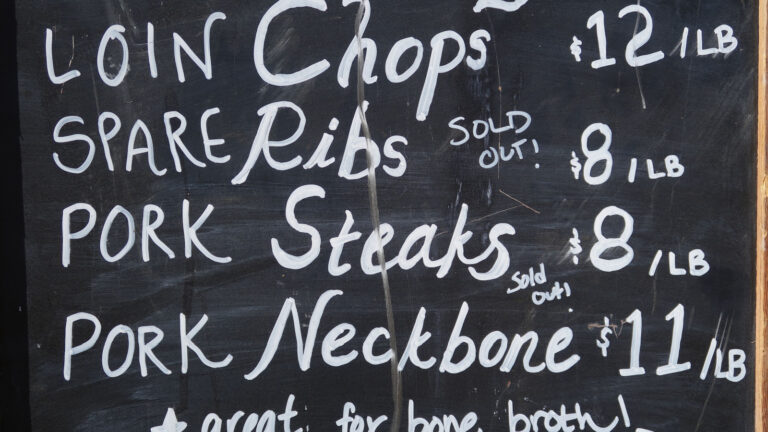 LOIN Chops $12/LB
SPARE Ribs SOLD OUT! $8/LB
PORK Steaks $8/LB
Sold out!
PORK Neckbone $11/LB
★ great for bone broth!